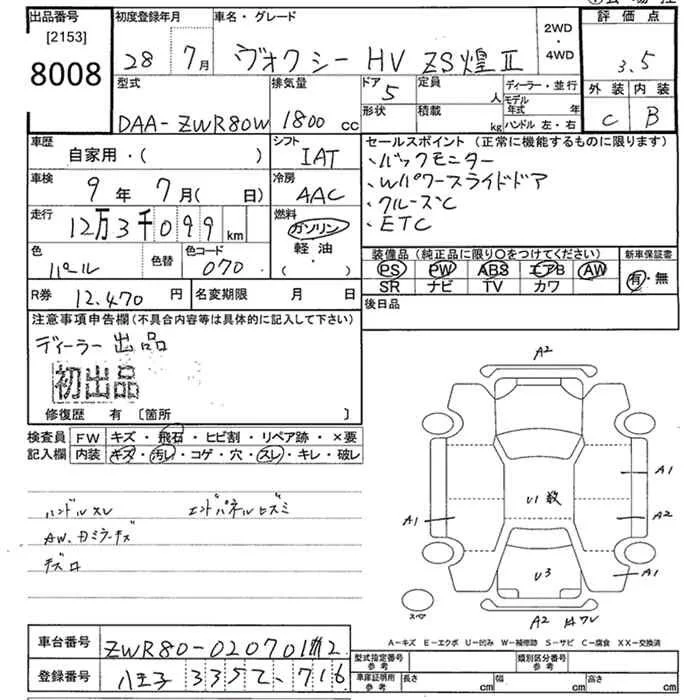 出品番号
[2153]
8008
初度登録年月
28 年 7月
車名・グレード
ヴォクシー HV ZS煌Ⅱ
2WD
・
4WD
評価点
3.5
外装 内装
C B
型式
DAA-ZWR80W
排気量
1800 cc
ドア
5
形状
定員
人
積載
kg
ディーラー・並行
モデル年式 年
ハンドル 左・右
車歴
自家用・( )
シフト
IAT
車検
9年 7月( 日)
冷房
AAC
走行
12万3千099 km
燃料
ガソリン
軽油
・
( )
色
パール
色替
色コード
070
R券 12,470 円
名変期限 月 日
セールスポイント(正常に機能するものに限ります)
、バックモニター
、Wパワースライドドア
、クルーズC
、ETC
装備品(純正品に限り○をつけてください)
PS PW ABS エアB AW
SR ナビ TV カワ
新車保証書
有・無
後日品
注意事項申告欄(不具合内容等は具体的に記入して下さい)
ディーラー出品
初出品
修復歴 有 〔箇所 〕
検査員記入欄
FW キズ・飛石・ヒビ割・リペア跡・×要
内装 キズ・汚レ・コゲ・穴・スレ・キレ・破レ
ハンドルスレ エンドパネルヒズミ
AW、カミラーキズ
A2
A1
U1
A2
A1
U3
A1
スペア
A2
A-キズ E-エクボ U-凹み W-補修跡 S-サビ C-腐食 XX-交換済
車台番号 ZWR80-0207012
登録番号 八王子 335 て・716
型式指定番号
参考
類別区分番号
参考
車庫証明用
参考
長さ cm
幅 cm
高さ cm